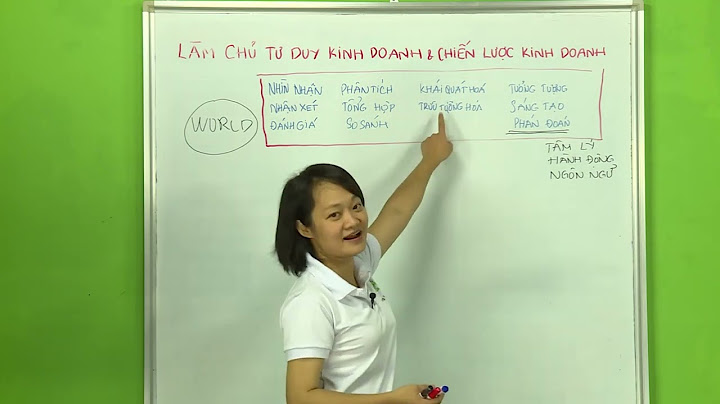 LÀM CHỦ TƯ DUY KINH DOANH & CHIẾN LƯỢC KINH DOANH
NHÌN NHẬN PHÂN TÍCH KHÁI QUÁT HOÁ TƯỞNG TƯỢNG
NHẬN XÉT TỔNG HỢP TRỪU TƯỢNG HOÁ SÁNG TẠO
ĐÁNH GIÁ SO SÁNH PHÁN ĐOÁN
WORLD
TÂM LÝ
HÀNH ĐỘNG
NGÔN NGỮ